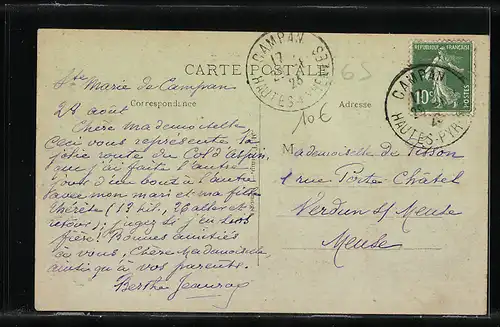 CAMPAN
17
23
HAUTES-PYRÉNÉES
REPUBLIQUE FRANÇAISE
10c
POSTES
CAMPAN
HAUTES-PYR
CARTE POSTALE
65
Correspondance
Adresse
10€
Ste Marie de Campan
24 août
Chère Mademoiselle
Ceci vous représente la
jolie route du Col d'Aspin,
que j'ai faite l'autre
jour d'un bout à l'autre
avec mon mari et ma fille
Thérèse (13 kil., 26 aller et
retour); jugez si j'en suis
fière! Bonnes amitiés
à vous, Chère Mademoiselle,
ainsi qu'à vos parents.
Berthe
Mademoiselle de
1 rue Porte Châtel
Verdun s/ Meuse
Meuse